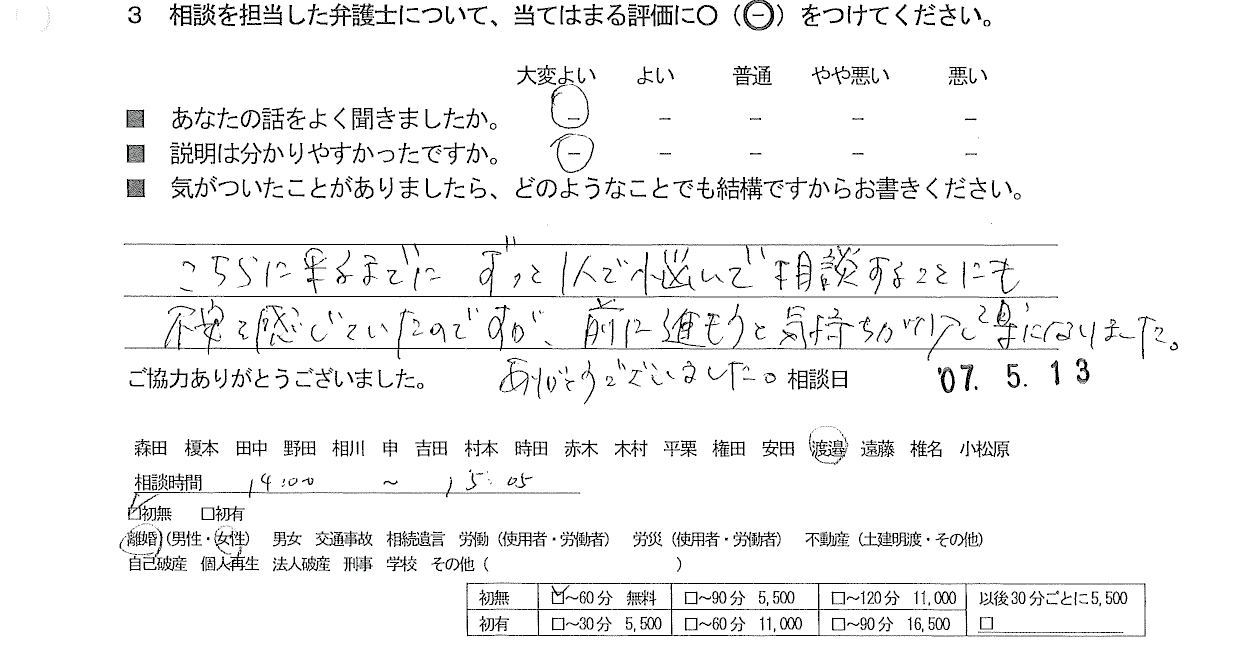 3 相談を担当した弁護士について、当てはまる評価に○（㊀）をつけてください。
大変よい よい 普通 やや悪い 悪い
■ あなたの話をよく聞きましたか。 － － － － －
■ 説明は分かりやすかったですか。 － － － － －
■ 気がついたことがありましたら、どのようなことでも結構ですからお書きください。
こちらに来るまでに ずっと1人で悩いで相談することにも
不安を感じていたのですが、前に進もうと気持ちが少し楽になりました。
ありがとうございました。
ご協力ありがとうございました。 相談日 '07. 5. 13
森田 榎本 田中 野田 相川 申 吉田 村本 時田 赤木 木村 平栗 権田 安田 渡邉 遠藤 椎名 小松原
相談時間 14:00 ～ 15:05
☑初無 □初有
離婚（男性・女性） 男女 交通事故 相続遺言 労働（使用者・労働者） 労災（使用者・労働者） 不動産（土建明渡・その他）
自己破産 個人再生 法人破産 刑事 学校 その他（ ）
初無 ☑～60分 無料 □～90分 5,500 □～120分 11,000 以後30分ごとに5,500
初有 □～30分 5,500 □～60分 11,000 □～90分 16,500 □